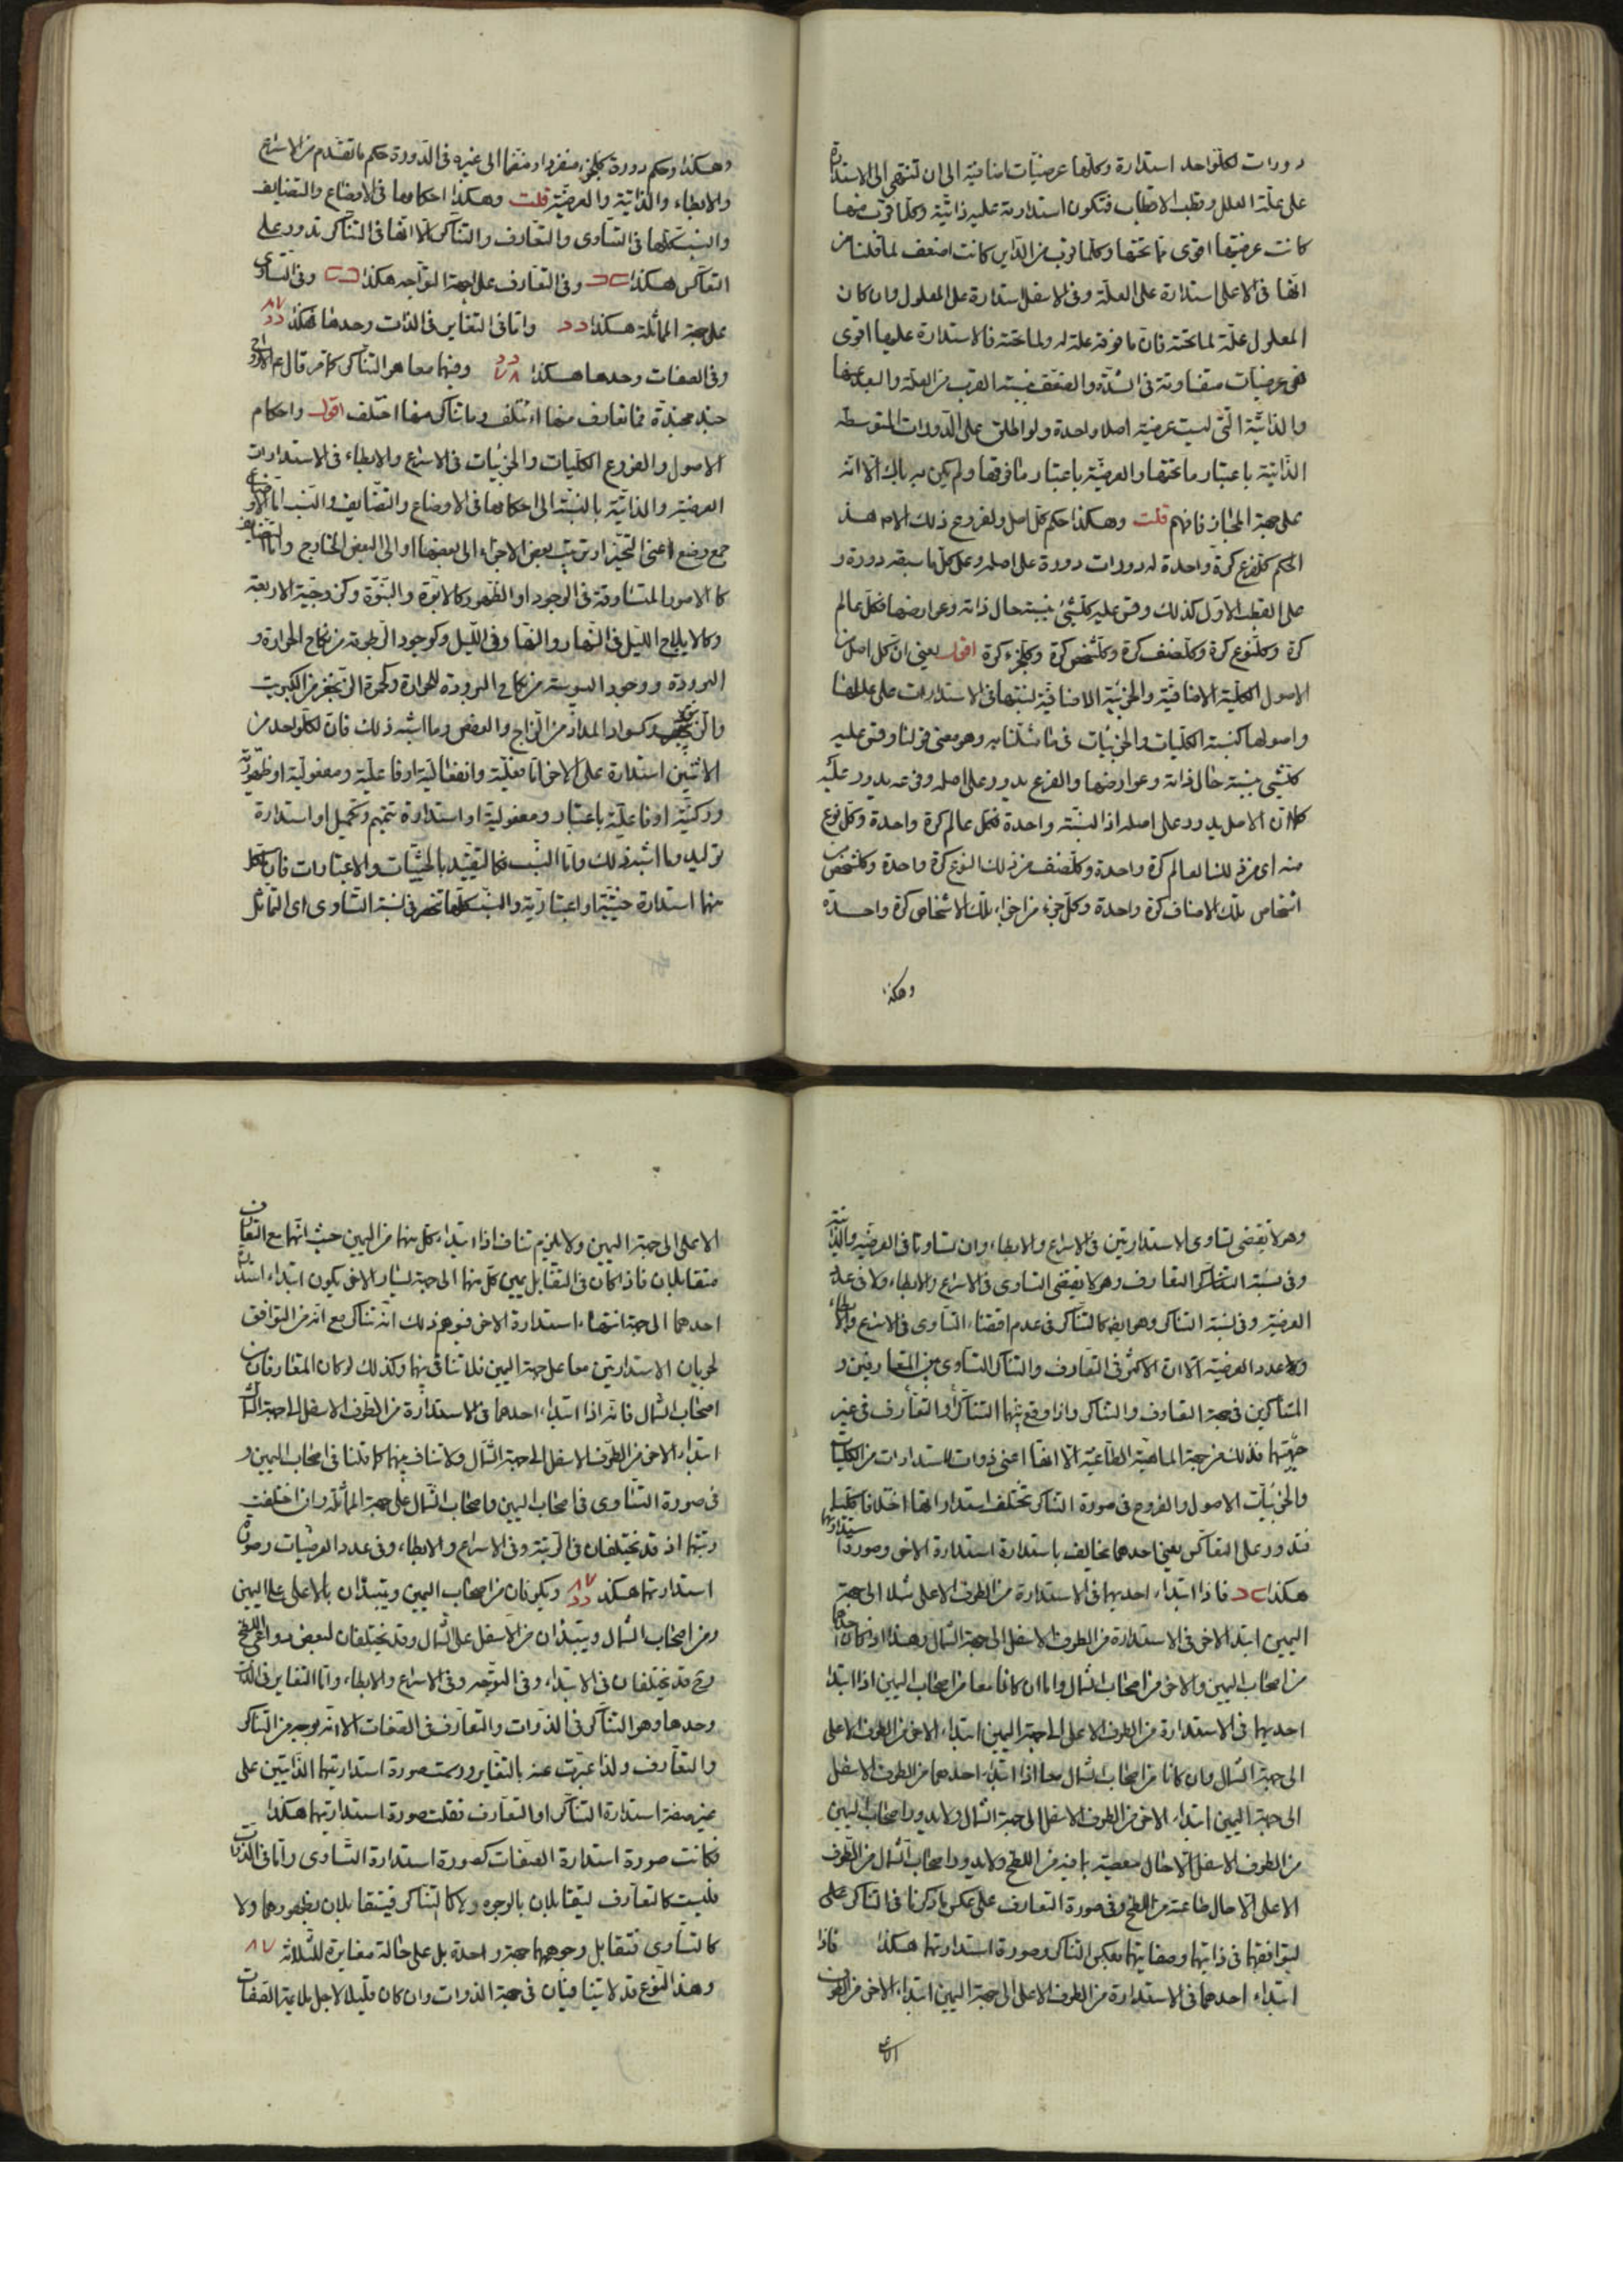 دورات لكل واحد استدارة وكلها عرضيات اضافية الى ان تنتهى الى الاستدارة
على علة العلل وقطب الاقطاب فتكون استدارته عليه ذاتية وكلما قرب منها
كانت عرضيتها اقوى مما تحتها وكلما قرب من الذاتى كانت اضعف لما قلنا من
انها فى الاعلى استدارة على العلة وفى الاسفل استدارة على المعلول وان كان
المعلول علة لما تحته فان ما فوقه علة له ولما تحته فالاستدارة عليها اقوى
فهى عرضيات متفاوتة فى الشدة والضعف بنسبة القرب من العلة والبعد عنها
والذاتية التى ليست عرضية اصلا واحدة ولو اطلق على الدورات المتوسطة
الذاتية باعتبار ما تحتها والعرضية باعتبار ما فوقها ولم يكن به باك الا انه
على جهة المجاز فافهم قلت وهكذا حكم كل اصل ولفروع ذلك الاصل هذا
الحكم كل فرع كرة واحدة له دورات دورة على اصله وعلى كل ما سبقه دورة و
على القطب الاول كذلك وقس عليه كل شئ بنسبة حال ذاته وعوارضها فكل عالم
كرة وكل نوع كرة وكل صنف كرة وكل شخص كرة وكل جزء كرة اقول يعنى ان كل اصل من
الاصول الكلية الاضافية والجزئية الاضافية لنسبتها فى الاستدارات على عللها
واصولها كنسبة الكليات والجزئيات فى ما مثلنا به وهو معنى قولنا وقس عليه
كل شئ بنسبة حال ذاته وعوارضها والفرع يدور على اصله وفرعه يدور عليه
كما ان الاصل يدور على اصله اذ النسبة واحدة فكل عالم كرة واحدة وكل نوع
منه اى من ذلك العالم كرة واحدة وكل صنف من ذلك النوع كرة واحدة وكل شخص من
اشخاص تلك الاصناف كرة واحدة وكل جزء من اجزاء تلك الاشخاص كرة واحدة
وهكذا
وهكذا وحكم دورة كل جزء منفردا ومنضما الى غيره فى الدورة حكم ما تقدم من الاسراع
والابطاء والذاتية والعرضية قلت وهكذا احكامها فى الاوضاع والتضايف
والنسب كلها فى التساوى والتعارف والتناكر الا انها فى التناكر تدور على
التعاكس هكذا وفى التعارف على جهة التواجه هكذا وفى التساوى
على جهة المماثلة هكذا واما فى التغاير فى الذات وحدها هكذا
وفى الصفات وحدها هكذا وفيها معا هو التناكر كما مر قال ع الارواح
جنود مجندة فما تعارف منها ائتلف وما تناكر منها اختلف اقول واحكام
الاصول والفروع الكليات والجزئيات فى الاسراع والابطاء فى الاستدارات
العرضية والذاتية بالنسبة الى احكامها فى الاوضاع والتضايف والنسب اما الاوضاع
جمع وضع اعنى التحيز او ترتيب بعض الاجزاء الى بعضها او الى البعض الخارج واما التضايف
كالامور المتساوقة فى الوجود او الظهور كالابوة والبنوة وكزوجية الاربعة
وكالايلاج الليل فى النهار والنهار فى الليل وكوجود الرطوبة من نكاح الحرارة و
البرودة ووجود اليبوسة من نكاح البرودة للحرارة وكحمرة الزنجفر من الكبريت
والزيبق وكسواد المداد من الزاج والعفص وما اشبه ذلك فان لكل واحد من
الاثنين استدارة على الاخر اما فعلية وانفعالية او فاعلية ومفعولية او ظهورية
وركنية او فاعلية باعتبار ومفعولية او استدارة تتميم وتكميل او استدارة
توليد وما اشبه ذلك واما النسب فكالتقييد بالحيثيات والاعتبارات فان لكل
منها استدارة حيثية او اعتبارية والنسب كلها تنحصر فى نسبة التساوى اى التماثل
وهو لا يقتضى تساوى الاستدارتين فى الاسراع والابطاء وان تساوتا فى العرضية والذاتية
وفى نسبة التعارف وهو لا يقتضى التساوى فى الاسراع والابطاء ولا فى عدد
العرضية وفى نسبة التناكر وهو ايضا كالتناكر فى عدم اقتضاء التساوى فى الاسراع والابطاء
ولا عدد العرضية الا ان الاكثر فى التعارف والتناكر التساوى بين المتعارفين و
المتناكرين فى جهة التعارف والتناكر واذا وقع بينهما التناكر او التعارف فى غير
جهتهما فذلك من جهة الماهية الطاغية الا انها اعنى ذوات الاستدارات من الكليات
والجزئيات الاصول والفروع فى صورة التناكر تختلف استداراتها اختلافا كليا
فتدور على التعاكس يعنى احدهما يخالف باستدارة استدارة الاخر وصورة استدارتهما
هكذا فاذا ابتداء احدهما فى الاستدارة من الطرف الاعلى مثلا الى جهة
اليمين ابتدا الاخر فى الاستدارة من الطرف الاسفل الى جهة الشمال وهذا اذا كان احدهما
من اصحاب اليمين والاخر من اصحاب الشمال واما ان كانا معا من اصحاب اليمين اذا ابتدا
احدهما فى الاستدارة من الطرف الاعلى الى جهة اليمين ابتداء الاخر من الطرف الاعلى
الى جهة الشمال وان كانا من اصحاب الشمال معا اذا ابتداء احدهما من الطرف الاسفل
الى جهة اليمين ابتداء الاخر من الطرف الاسفل الى جهة الشمال ولا يدور اصحاب اليمين
من الطرف الاسفل الا حال معصية بما فيه من اللطخ ولا يدور اصحاب الشمال من الطرف
الاعلى الا حال طاعة من اللطخ وفى صورة التعارف على عكس ما ذكرنا فى التناكر على
لتوافقهما فى ذاتيهما وصفاتيهما بعكس التناكر وصورة استدارتهما هكذا فاذا
ابتداء احدهما فى الاستدارة من الطرف الاعلى الى جهة اليمين ابتداء الاخر من الطرف
الاعلى
الاعلى الى جهة اليمين ولا يلزم تناف اذا ابتداء كل منهما من اليمين حيث انهما مع التعارف
متقابلان فاذا كان فى التقابل يمين كل منهما الى جهة يسار الاخر يكون ابتداء استدارة
احدهما الى جهة انتهاء استدارة الاخر فيوهم ذلك انه تناكر مع انه من التوافق
لجريان الاستدارتين معا على جهة اليمين فلا تنافى بينهما وكذلك لو كان المتعارفان من
اصحاب الشمال فانه اذا ابتداء احدهما فى الاستدارة من الطرف الاسفل الى جهة الشمال
ابتداء الاخر من الطرف الاسفل الى جهة الشمال ولا تناف بينهما كما قلنا فى اصحاب اليمين و
فى صورة التساوى فاصحاب اليمين واصحاب الشمال على جهة المماثلة وان اختلفت
رتبتهما اذ قد يختلفان فى الرتبة وفى الاسراع والابطاء وفى عدد العرضيات وصورة
استدارتهما هكذا ويكونان من اصحاب اليمين ويبتدئان بالاعلى على اليمين
ومن اصحاب الشمال ويبتدئان من الاسفل على الشمال وقد يختلفان لبعض دواعى اللطخ
وح قد يختلفان فى الابتداء وفى التوجه وفى الاسراع والابطاء واما التغاير فى الذات
وحدها وهو التناكر فى الذوات والتعارف فى الصفات الا انه بوجه من التناكر
والتعارف ولذا عبرت عنه بالتغاير ورسمت صورة استدارتيهما الذاتيتين على
غير صفة استدارة التناكر او التعارف فقلت صورة استدارتيهما هكذا
فكانت صورة استدارة الصفات كصورة استدارة التساوى واما فى الذوات
فليست كالتعارف ليتقابلان بالوجوه ولا كالتناكر فيتقابلان بظهورهما ولا
كالتساوى فتقابل وجوههما جهة واحدة بل على حالة مغايرة للثلاثة
وهذا النوع قد لا يتنافيان فى جهة الذوات وان كان قليلا لاجل ملايمة الصفات